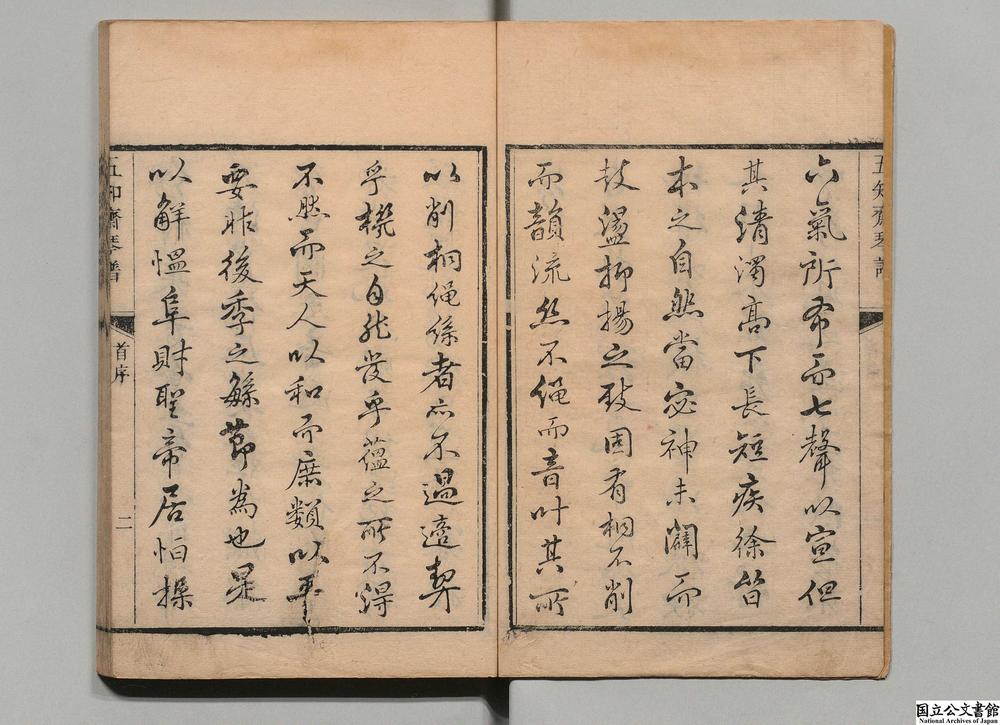 五知齋琴譜
六氣所布而七聲以宣但
其清濁高下長短疾徐皆
本之自然當宓神未闡而
鼓盪抑揚之致固有桐不削
而韻流絲不繩而音叶其所
以削桐繩絲者亦不過適契
乎機之自然發乎蘊之所不得
不然而天人以和而庶類以平
要非後季之緐節為也是
以解慍阜財聖帝居恒操
五知齋琴譜
首序
二
国立公文書館
National Archives of Japan